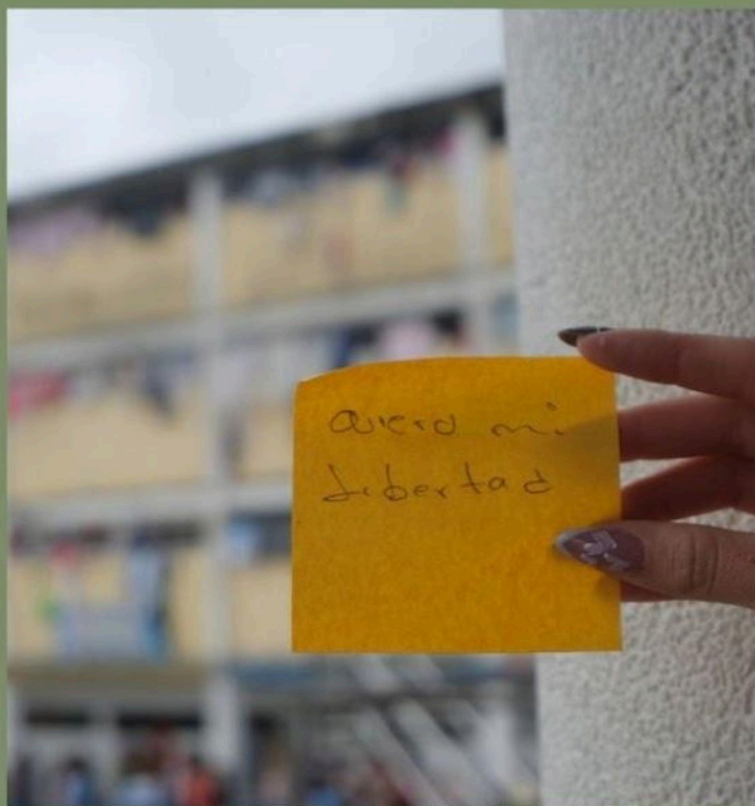 Quiero mi
Libertad